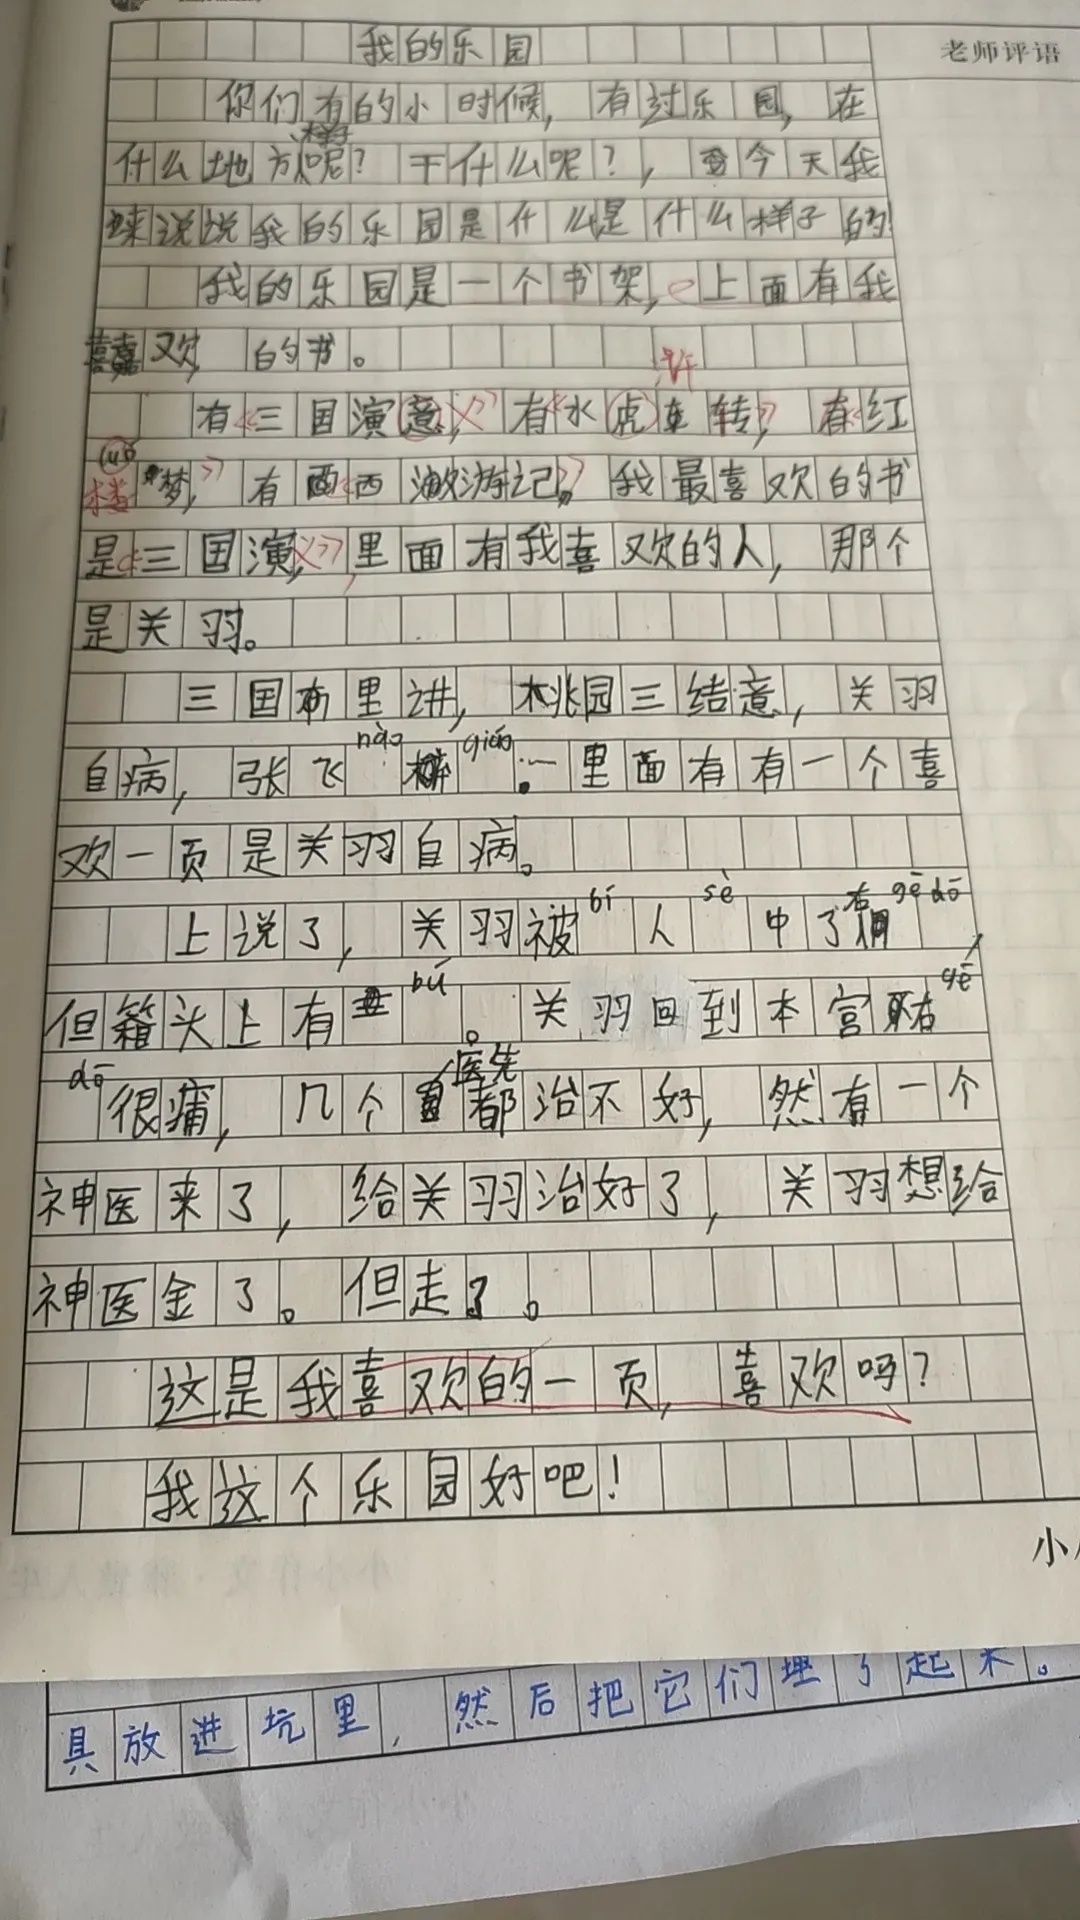 我的乐园
老师评语
你们有的小时候，有过乐园，在
样子
什么地方呢？干什么呢？，今天我
来说说我的乐园是什么是什么样子的
我的乐园是一个书架，上面有我
喜欢的书。
浒
有《三国演意》，有《水虎转》，有《红
楼梦》，有《西游记》。我最喜欢的书
是《三国演义》，里面有我喜欢的人，那个
是关羽。
三国里讲，桃园三结意，关羽
nào
自病，张飞 一里面有有一个喜
欢一页是关羽自病。
bí sè gē dō
上说了，关羽被 人 中了右
bú gē
但箍头上有 。关羽回到本宫右
dō 医先
很痛，几个都治不好，然有一个
神医来了，给关羽治好了，关羽想给
神医金了。但走了。
这是我喜欢的一页，喜欢吗？
我这个乐园好吧！
具放进坑里，然后把它们埋了起来。